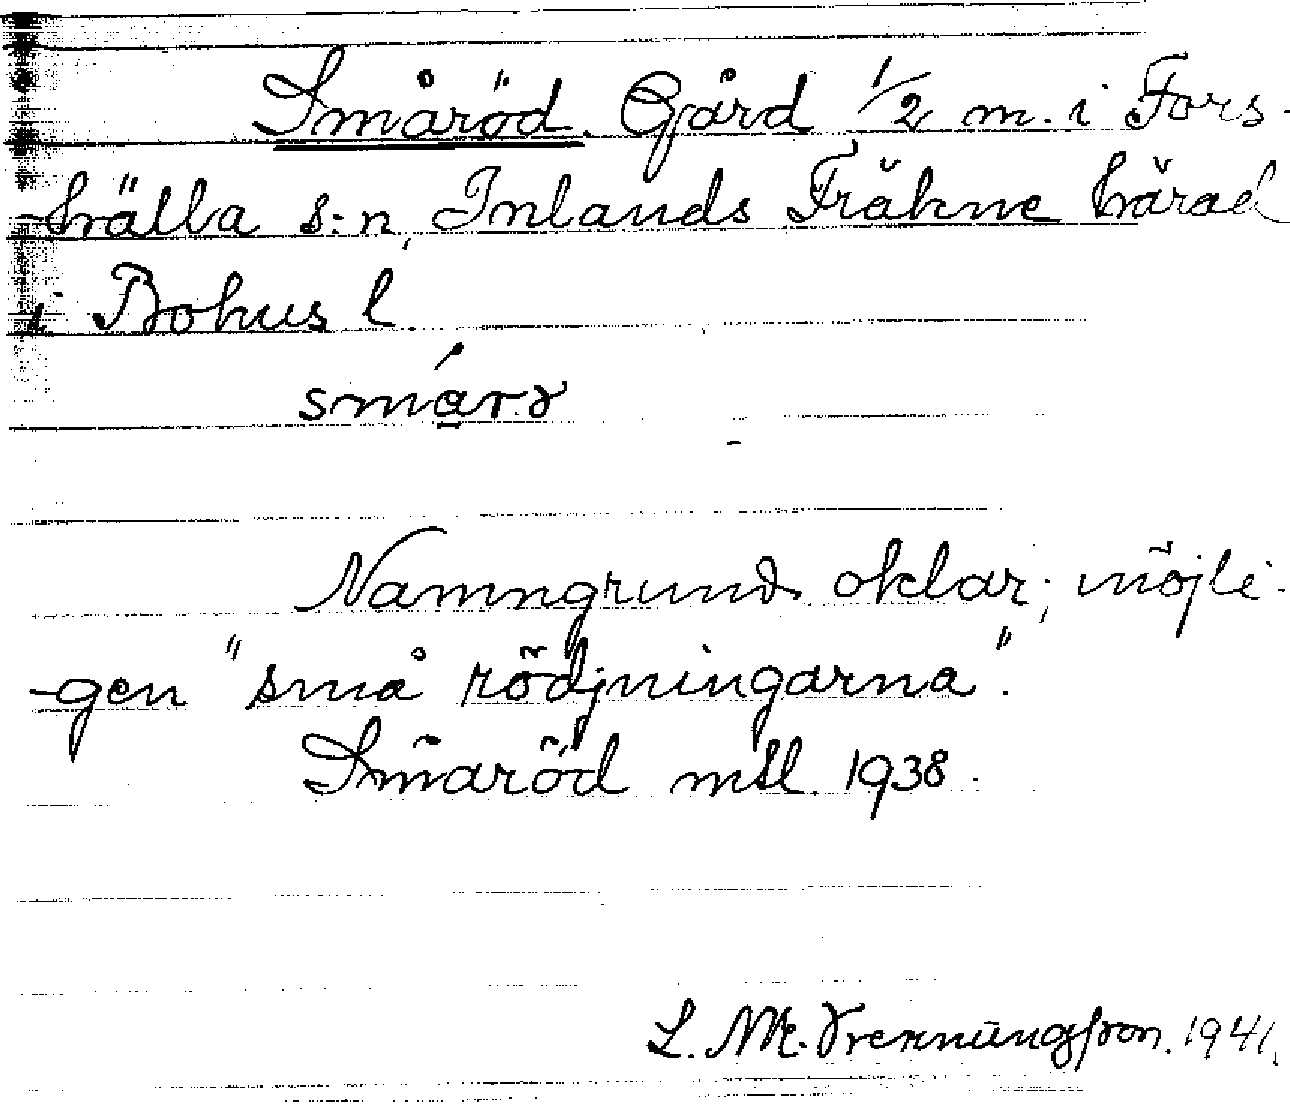 Småröd. Gård 1/2 m. i Fors-
-hälla s:n, Inlands Fräkne härad
i Bohus l.
Namngrund oklar; möjli-
-gen "små rödjningarna".
Småröd mtl. 1938.
1941.